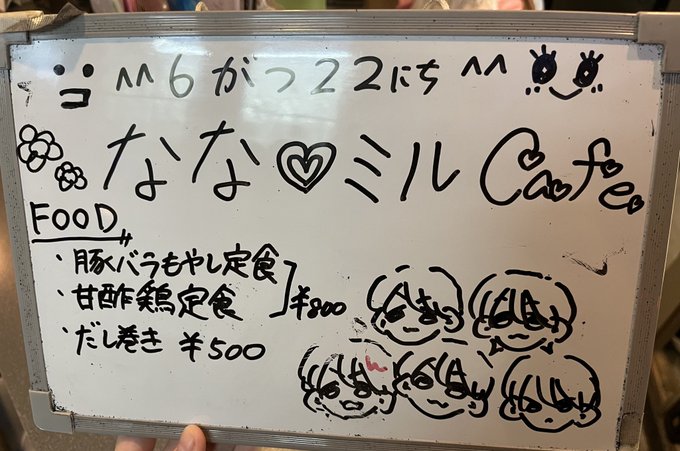 ^^6がつ22にち^^
なな♡ミルCafe
FOOD
・豚バラもやし定食
・甘酢鶏定食
¥800
・だし巻き ¥500